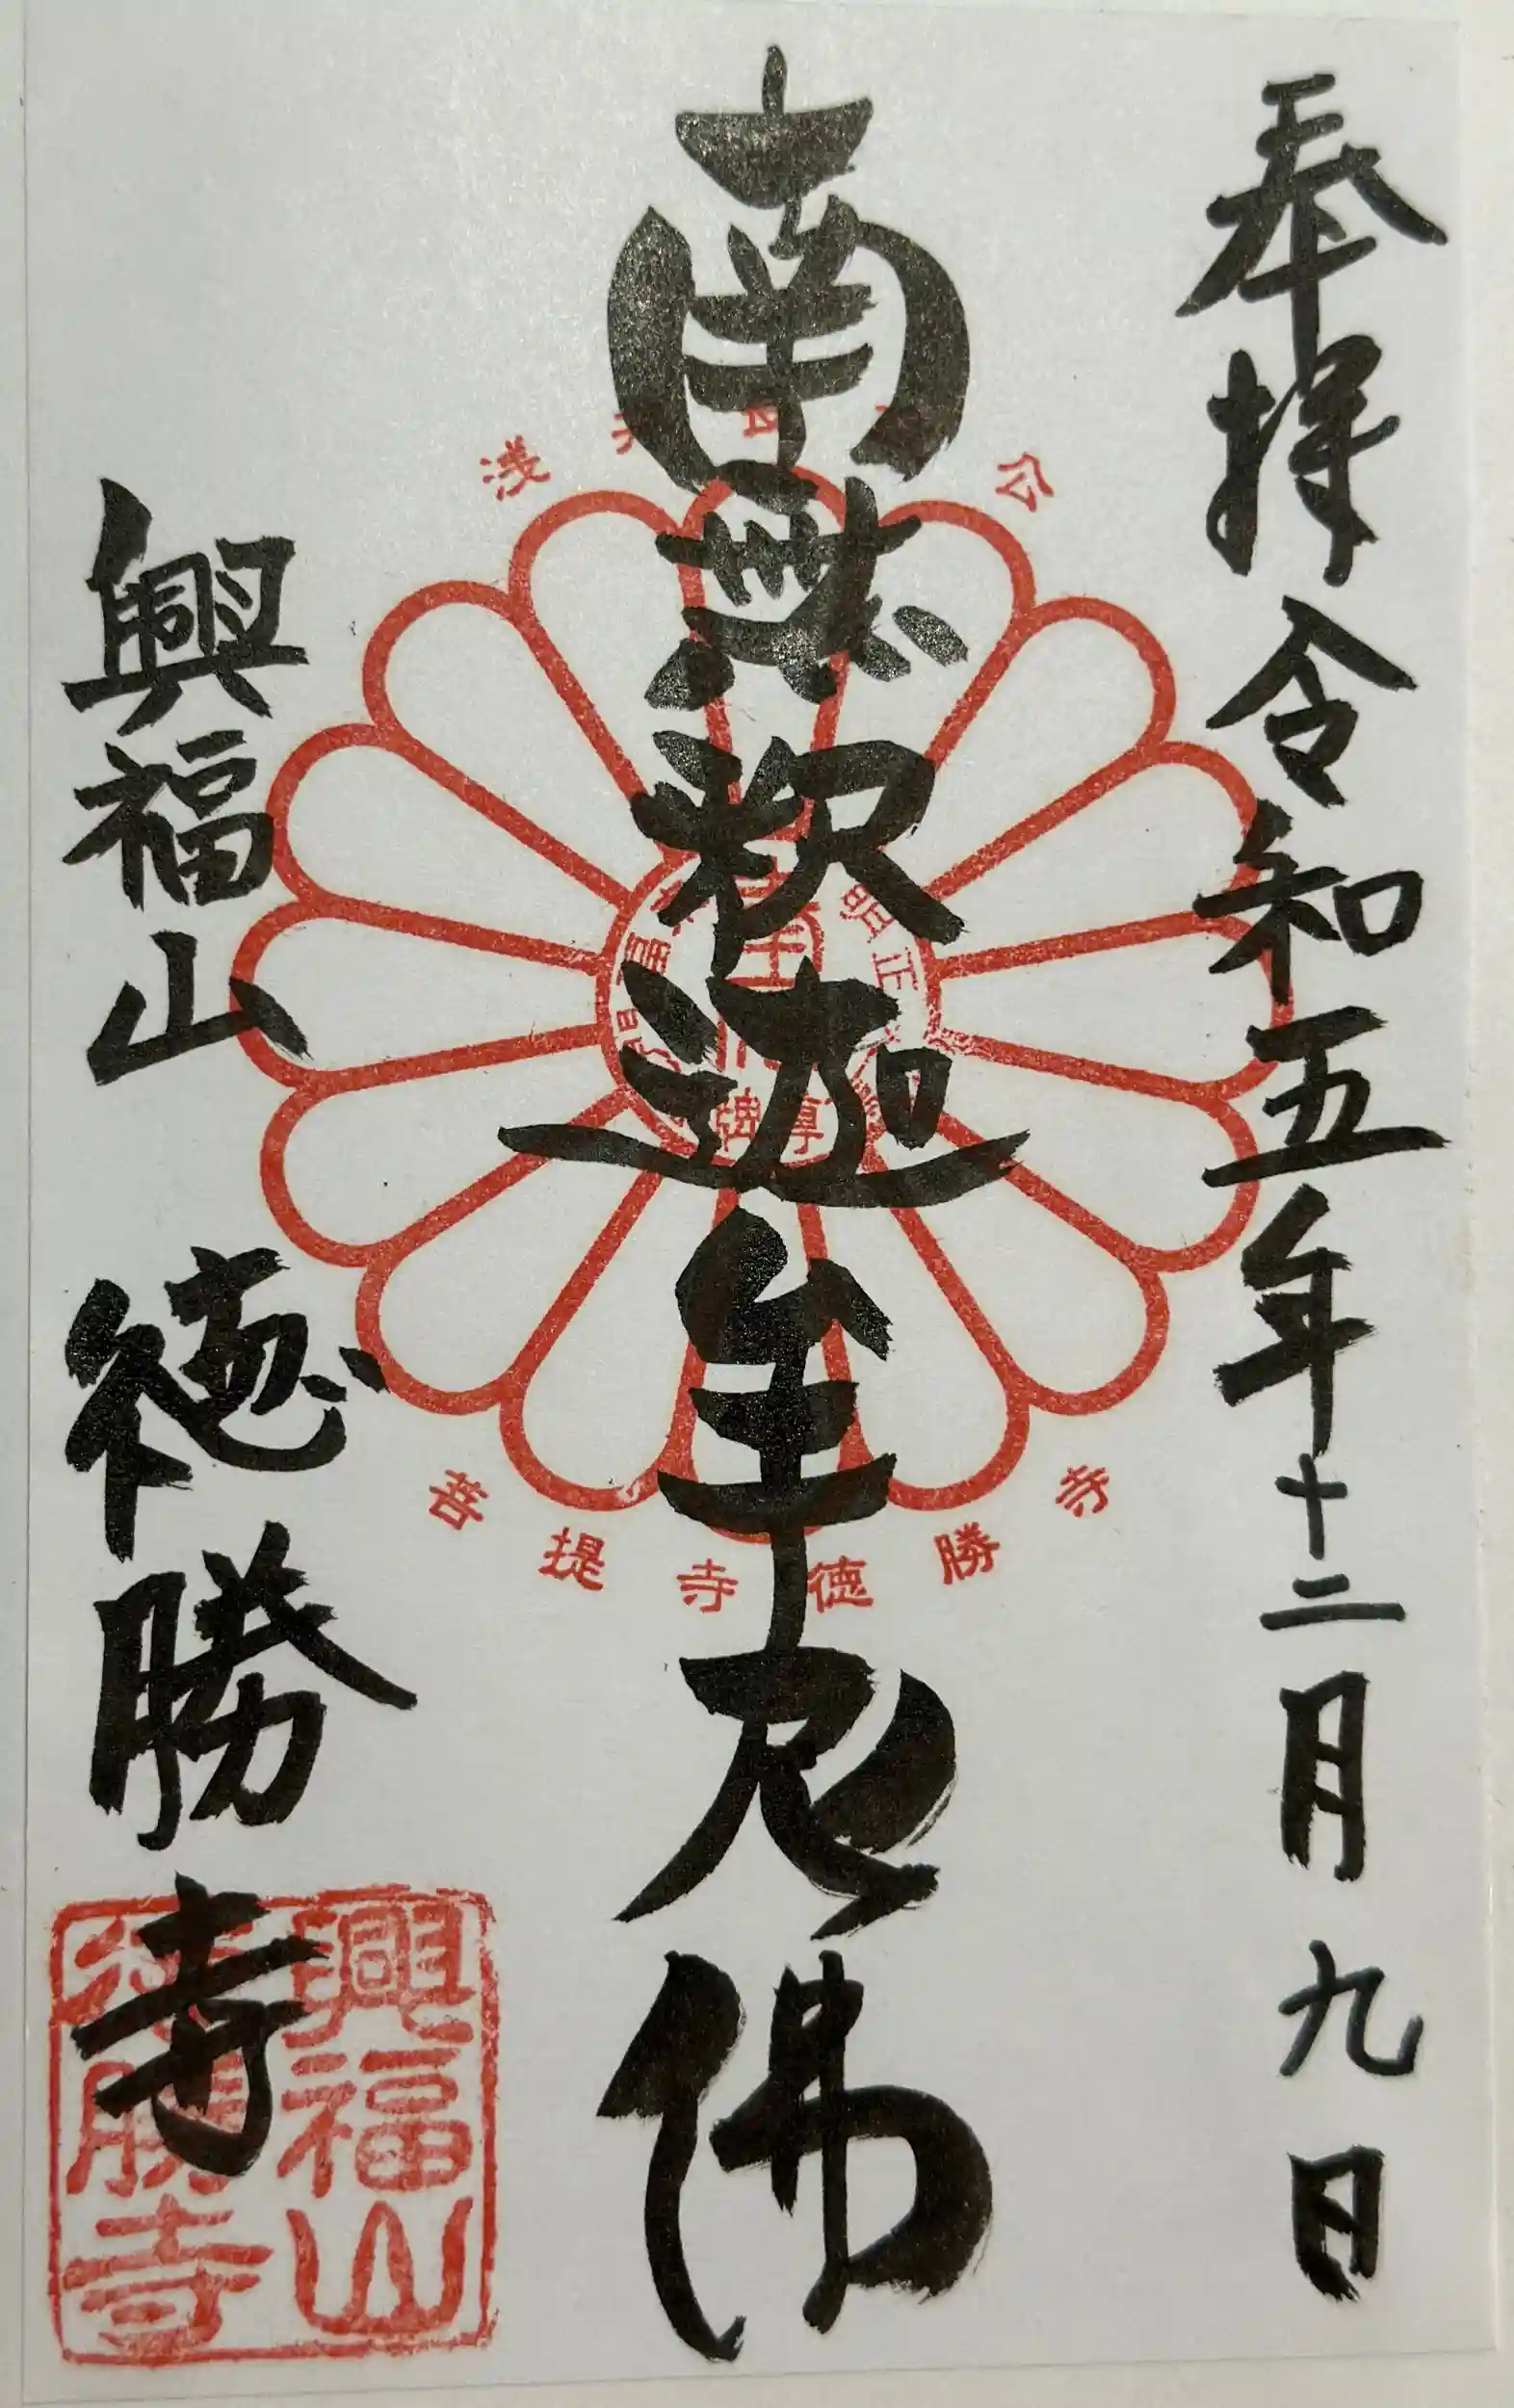 奉拝 令和五年十二月九日
南無釈迦牟尼佛
興福山 徳勝寺
浅井
公
菩提寺徳勝寺
明正
興福山
徳勝寺